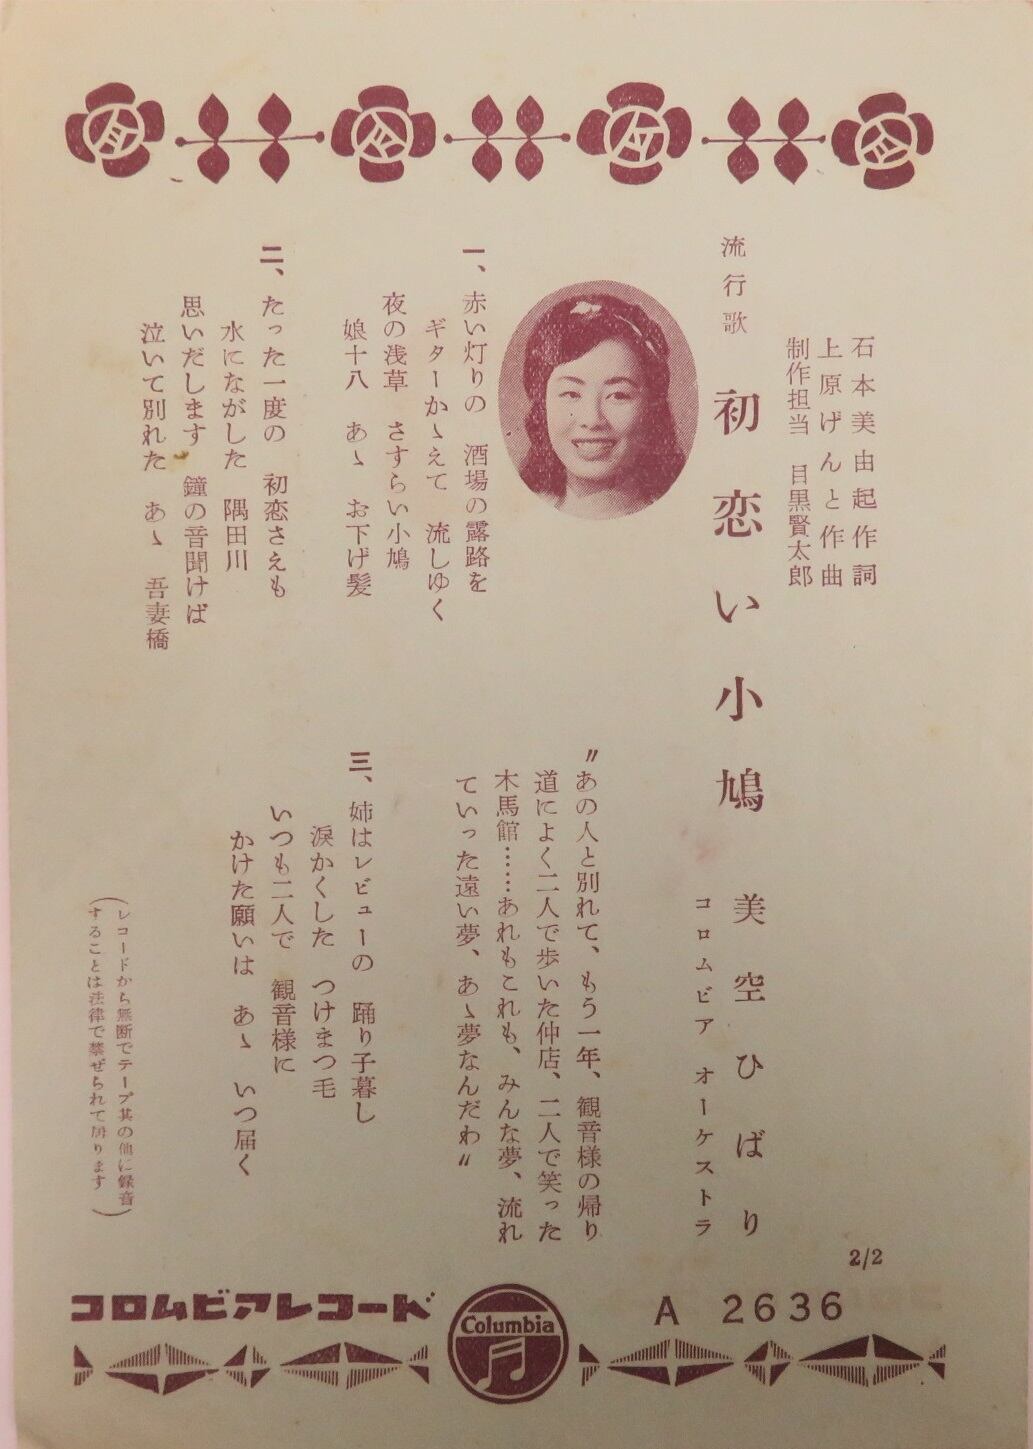 石本美由起作詞
上原げんと作曲
制作担当 目黒賢太郎
流行歌 初恋い小鳩 美空ひばり
コロムビア オーケストラ
一、赤い灯りの 酒場の露路を
ギターかゝえて 流しゆく
夜の浅草 さすらい小鳩
娘十八 あゝ お下げ髪
二、たった一度の 初恋さえも
水にながした 隅田川
思いだします 鐘の音聞けば
泣いて別れた あゝ 吾妻橋
〃あの人と別れて、もう一年、観音様の帰り
道によく二人で歩いた仲店、二人で笑った
木馬館……あれもこれも、みんな夢、流れ
ていった遠い夢、あゝ夢なんだわ〃
三、姉はレビューの 踊り子暮し
涙かくした つけまつ毛
いつも二人で 観音様に
かけた願いは あゝ いつ届く
(レコードから無断でテープ其の他に録音
することは法律で禁ぜられて居ります)
2/2
コロムビアレコード
Columbia
A 2636